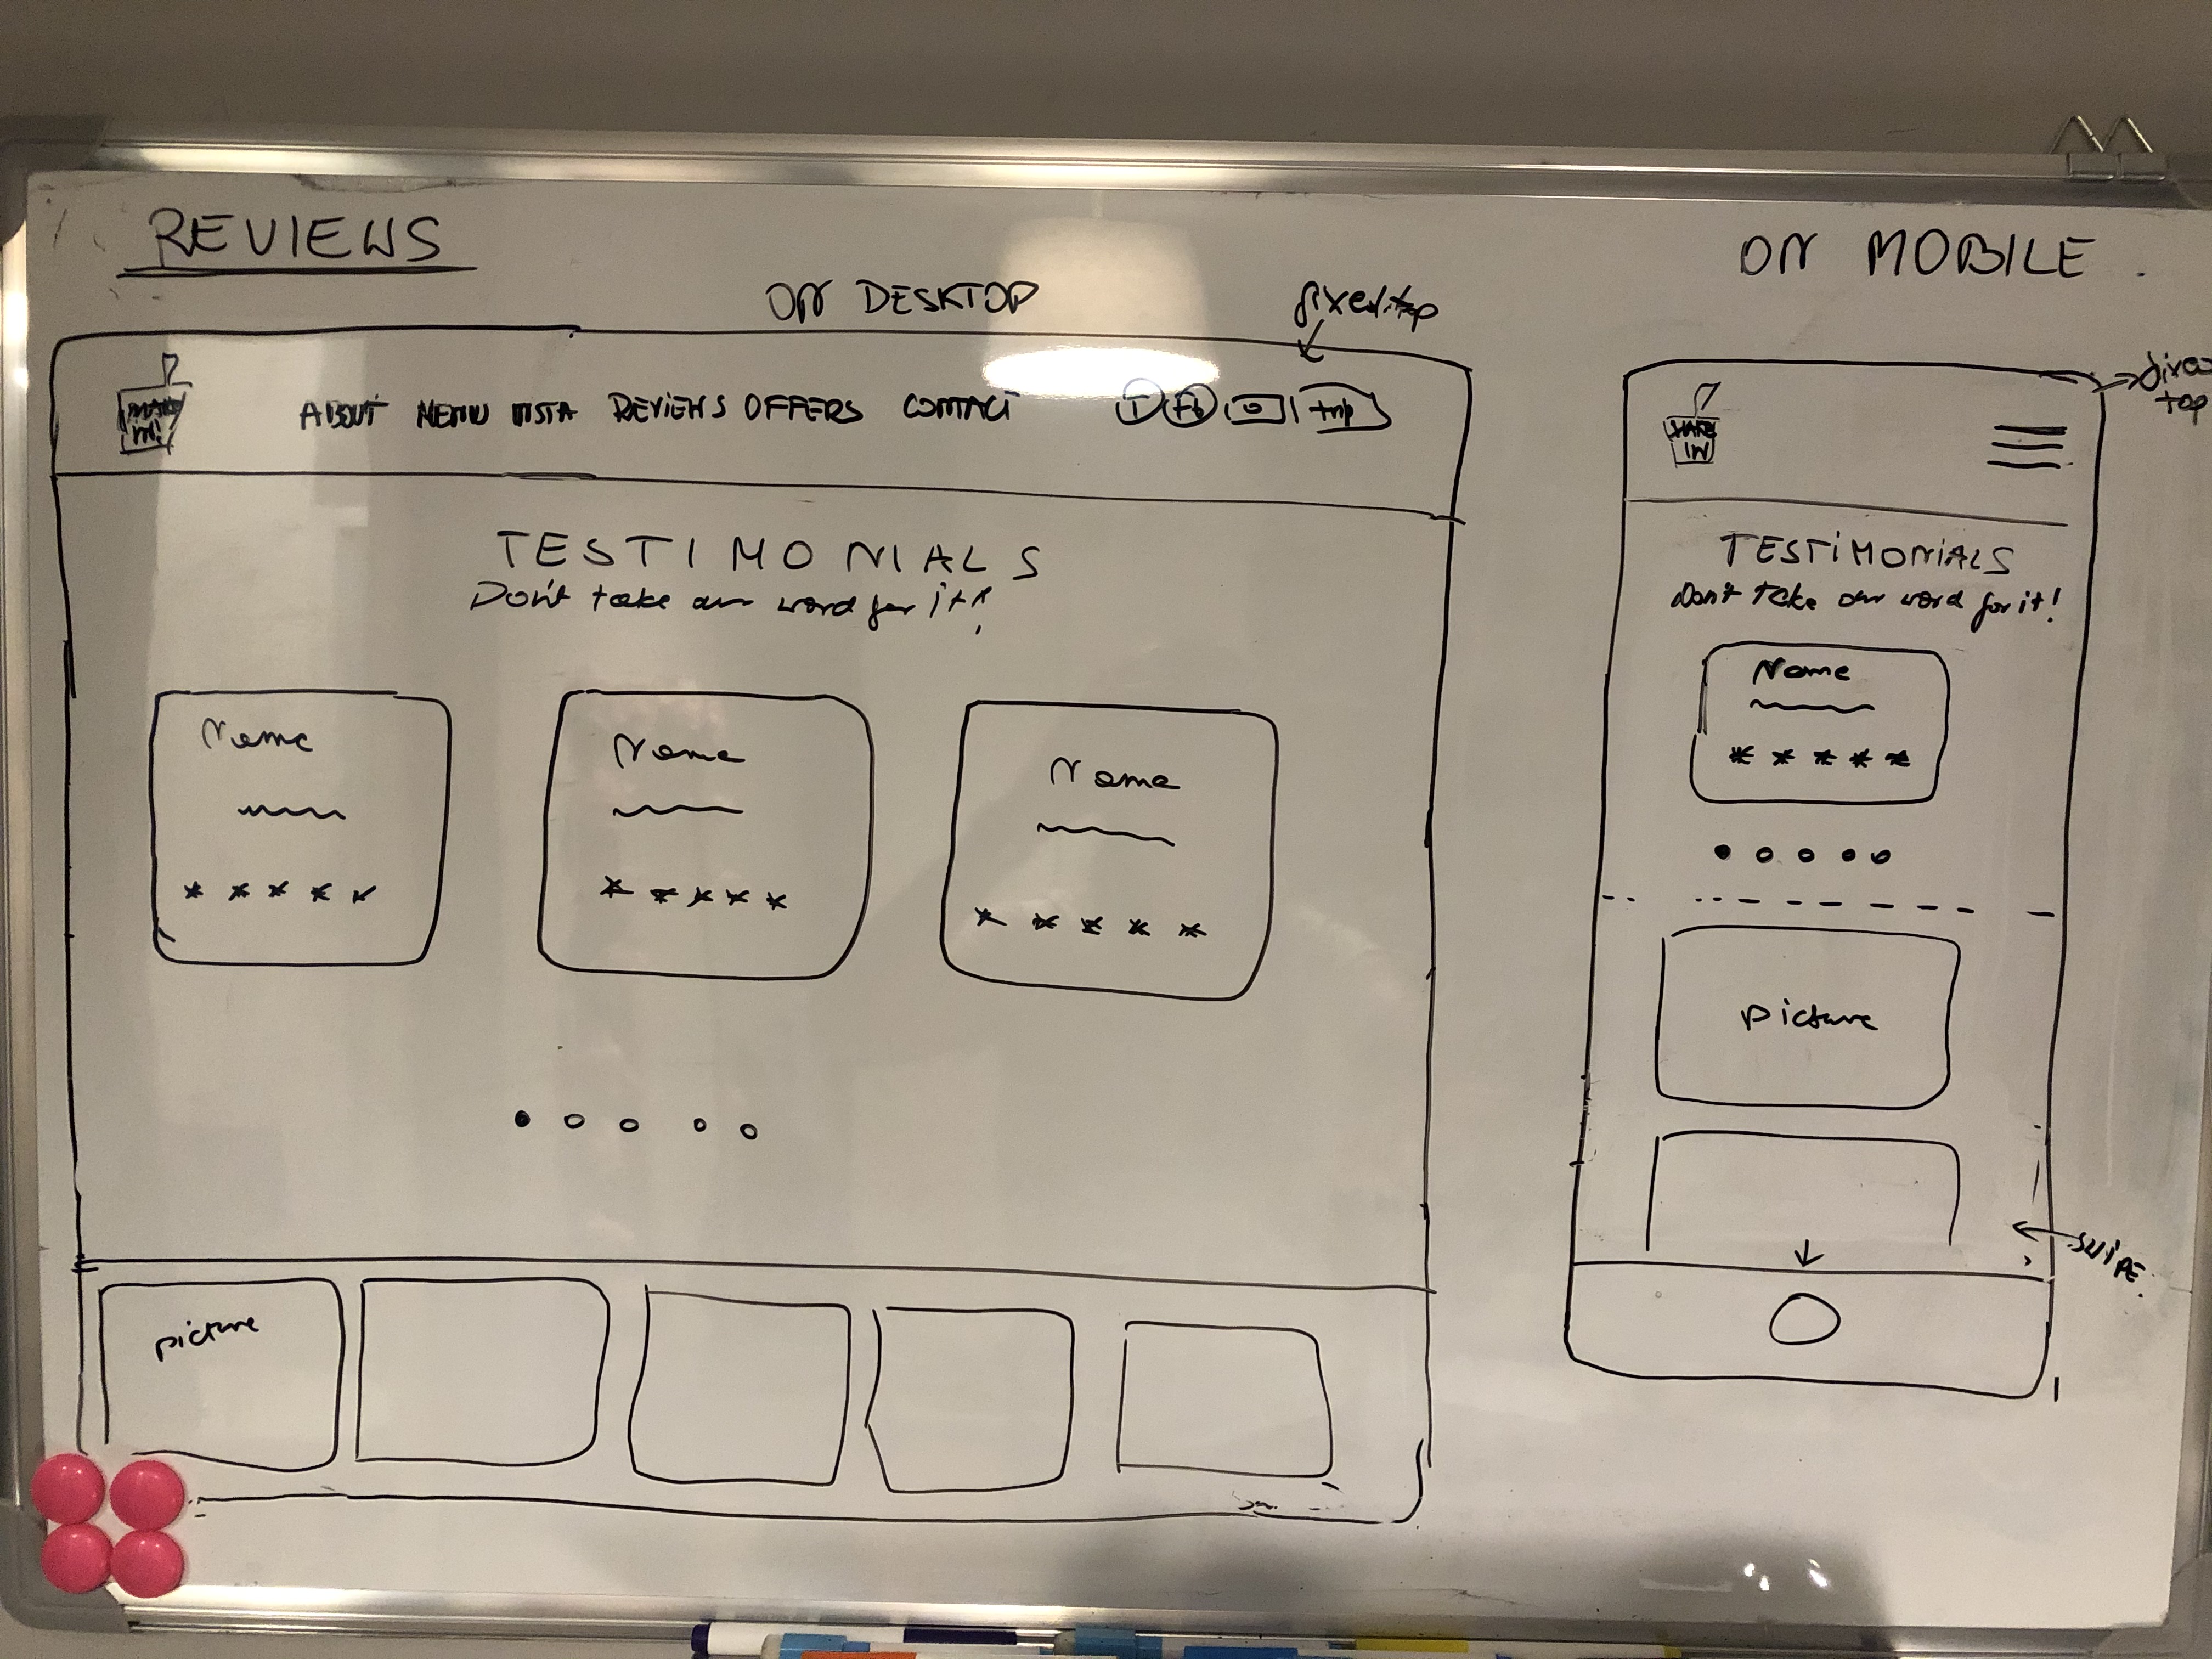 REVIEWS
ON DESKTOP
fixed top
ABOUT MENU INSTA REVIEWS OFFERS CONTACT
T Fb trip
TESTIMONIALS
Don't take our word for it!
Name
* * * * *
Name
* * * * *
Name
* * * * *
picture
ON MOBILE
top
SHAKE
IN
TESTIMONIALS
Don't take our word for it!
Name
* * * * *
picture
SWIPE